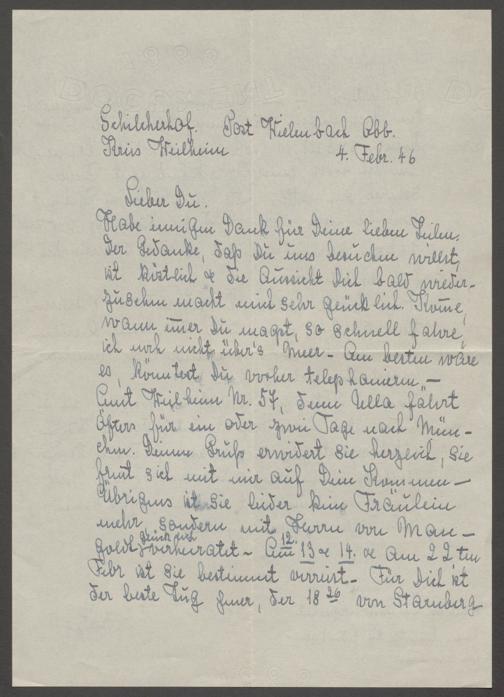 Schilcherhof. Post Wielenbach Obb.
Kreis Weilheim 4. Febr. 46
Lieber Du.
Habe innigen Dank für Deine lieben Zeilen.
Der Gedanke, daß Du uns besuchen willst,
ist köstlich & die Aussicht Dich bald wieder-
zusehen macht mich sehr glücklich. Kom̅e,
wann im̅er Du magst, so schnell fahre,
ich noch nicht über's Meer - Am besten wäre
es, könntest Du vorher telephonieren. -
Amt Weilheim Nr. 57, denn Ulla fährt
öfters für ein oder zwei Tage nach Mün-
chen. Deinen Gruß erwidert sie herzlich, sie
freut sich mit mir auf Dein Kommen -
Übrigens ist sie leider kein Fräulein
mehr, sondern mit Herrn von Man-
goldt glücklich verheiratet - Am 12. 13 & 14. & am 22ten
Febr ist sie bestimmt verreist - Für Dich ist
der beste Zug, der 18 26 von Starnberg